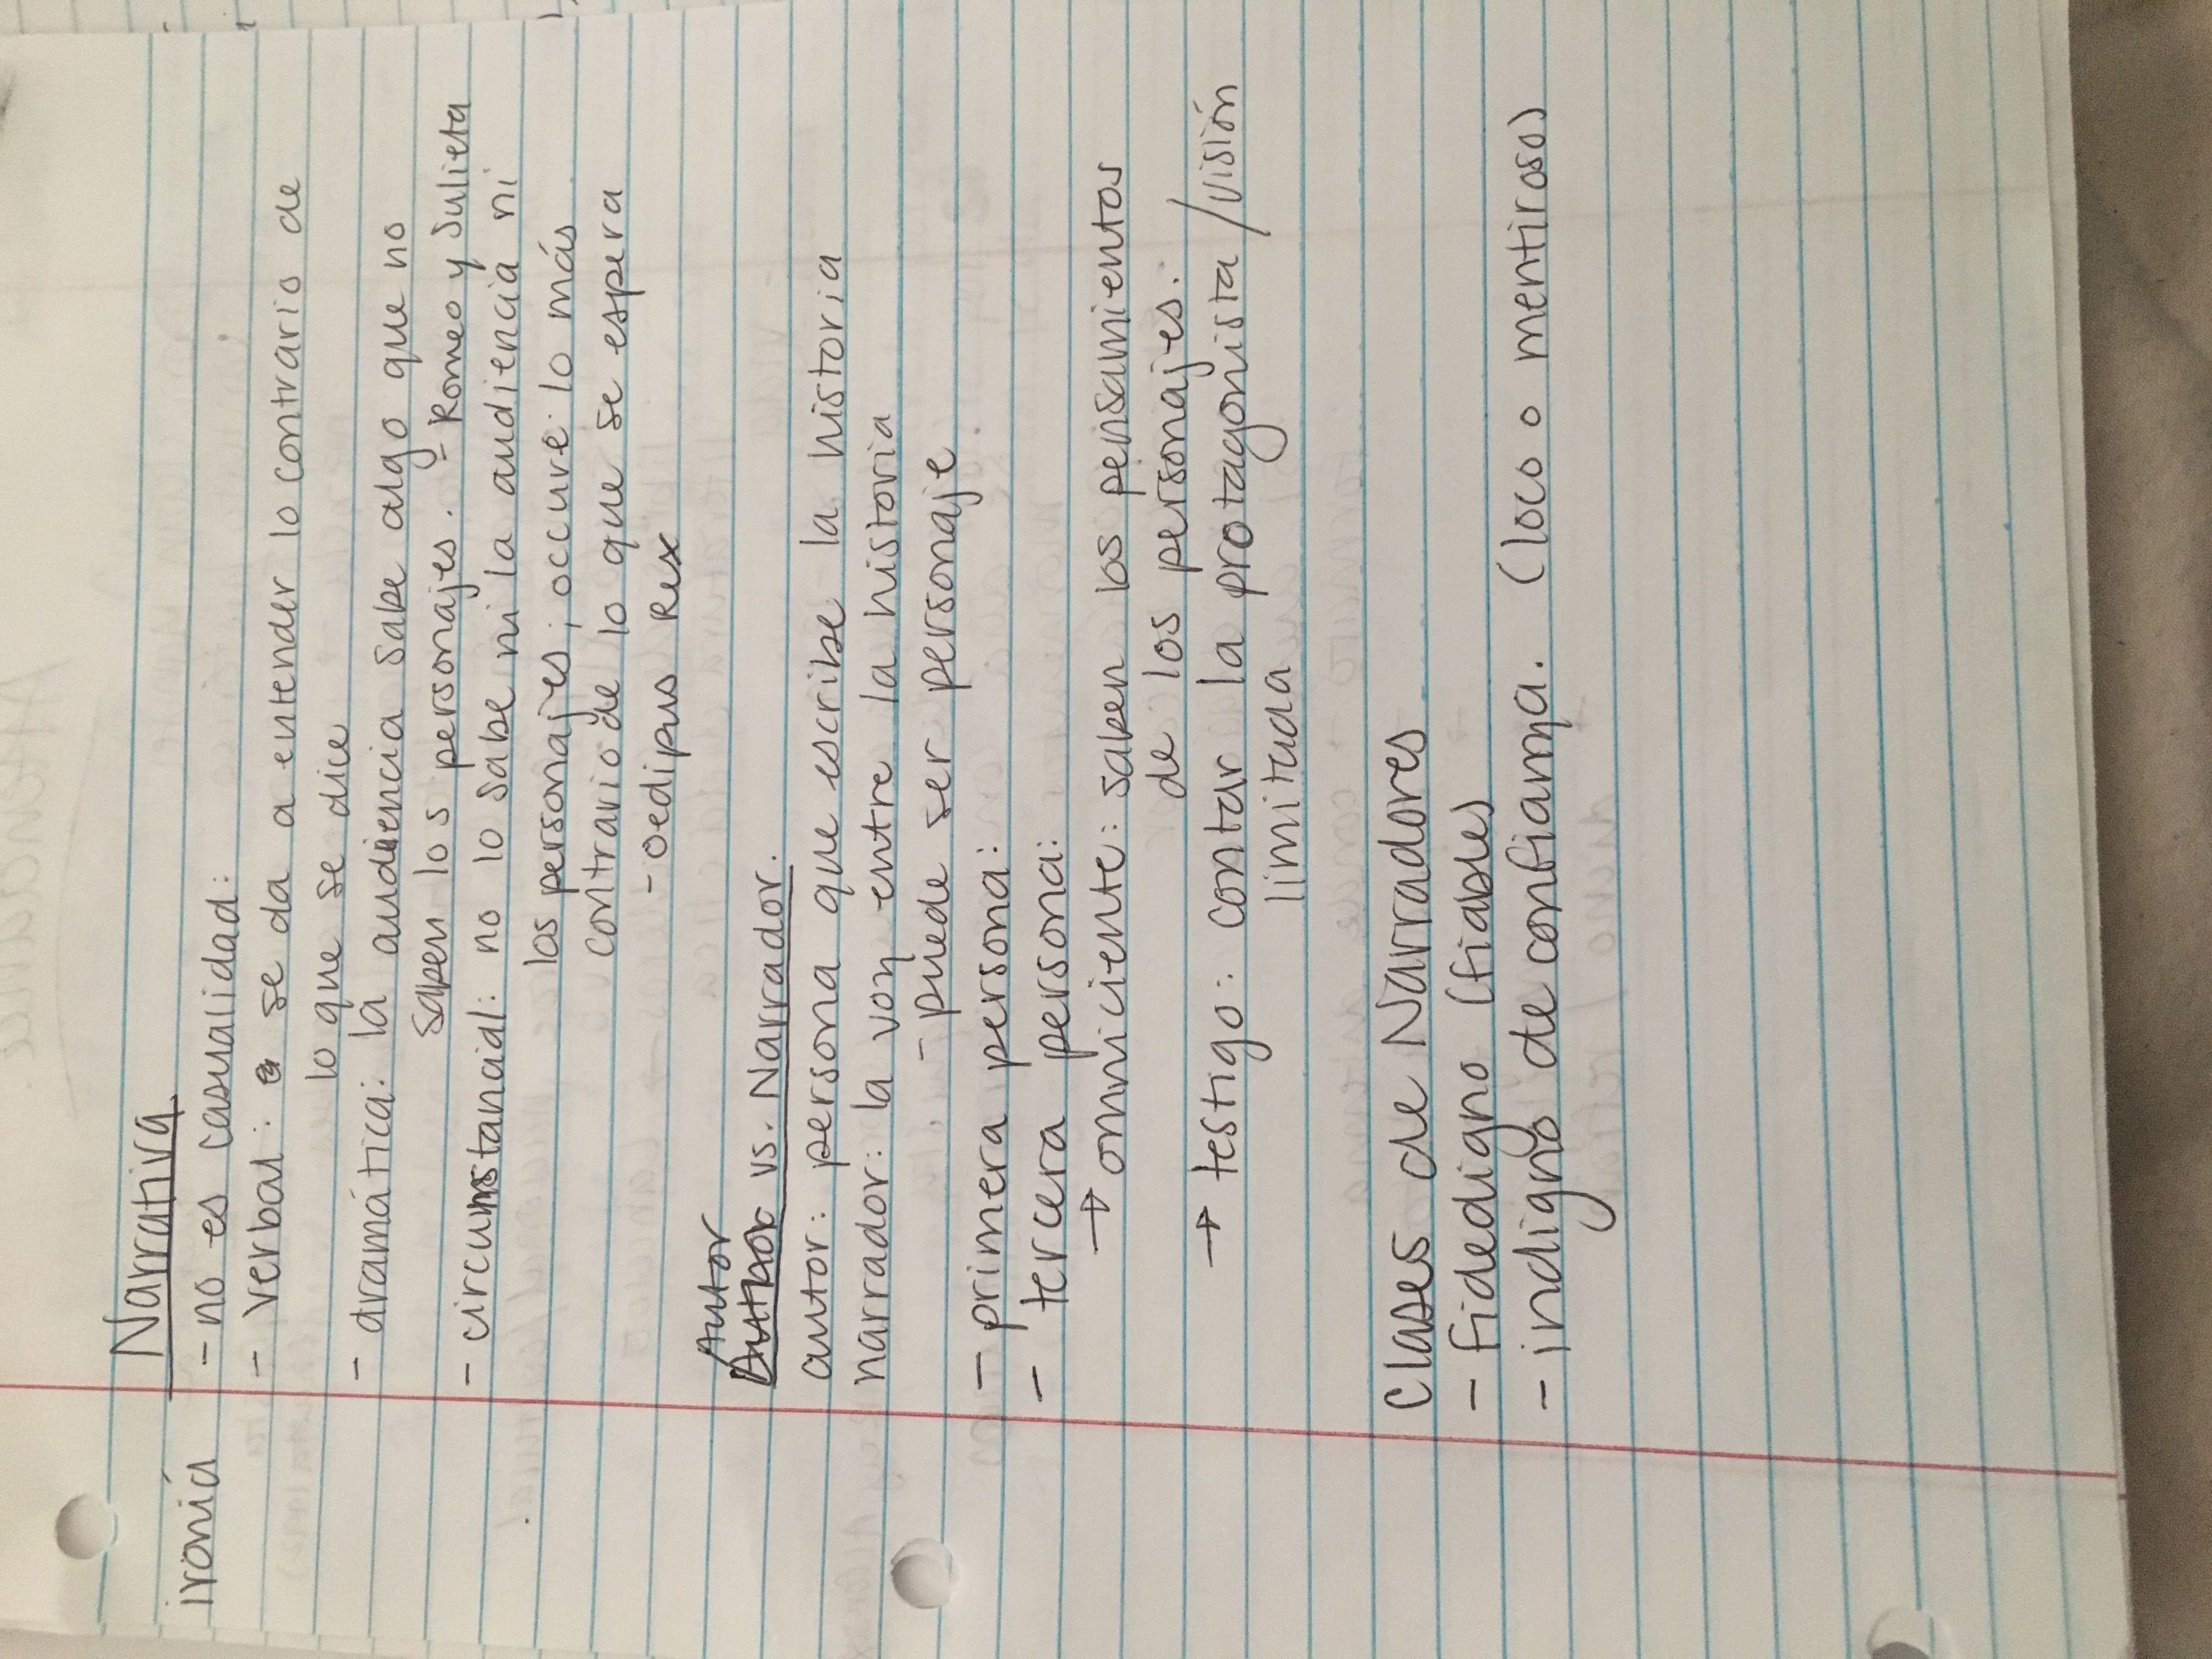 Narrativa
ironía - no es casualidad:
- verbal: se da a entender lo contrario de
lo que se dice
- dramática: la audiencia sabe algo que no
saben los personajes. - Romeo y Julieta
- circumstancial: no lo sabe ni la audiencia ni
los personajes; occure lo más
contrario de lo que se espera
- Oedipus Rex
Autor
Author vs. Narrador.
autor: persona que escribe la historia
narrador: la voz entre la historia
- puede ser personaje
- primera persona:
- tercera persona:
→ omniciente: saben los pensamientos
de los personajes.
→ testigo: contar la protagonista / visión
limitada
Clases de Narradores
- fidedigno (fiable)
- indigno de confianza. (loco o mentiroso)